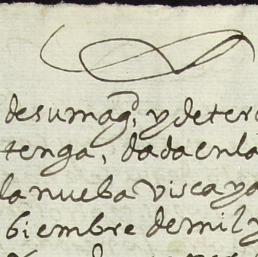 desumagd, y deter
tenga, dada enla
la nueba viscaya
biembre demil y